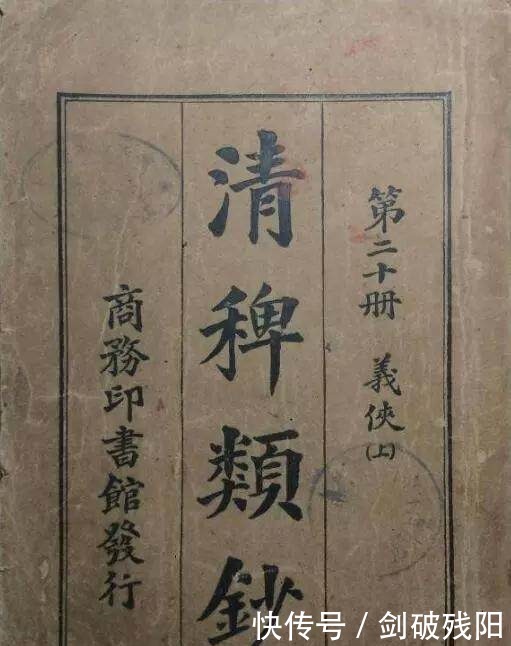 第二十册 義俠(上)
清稗類鈔
商務印書館發行
快传号 / 剑破残阳